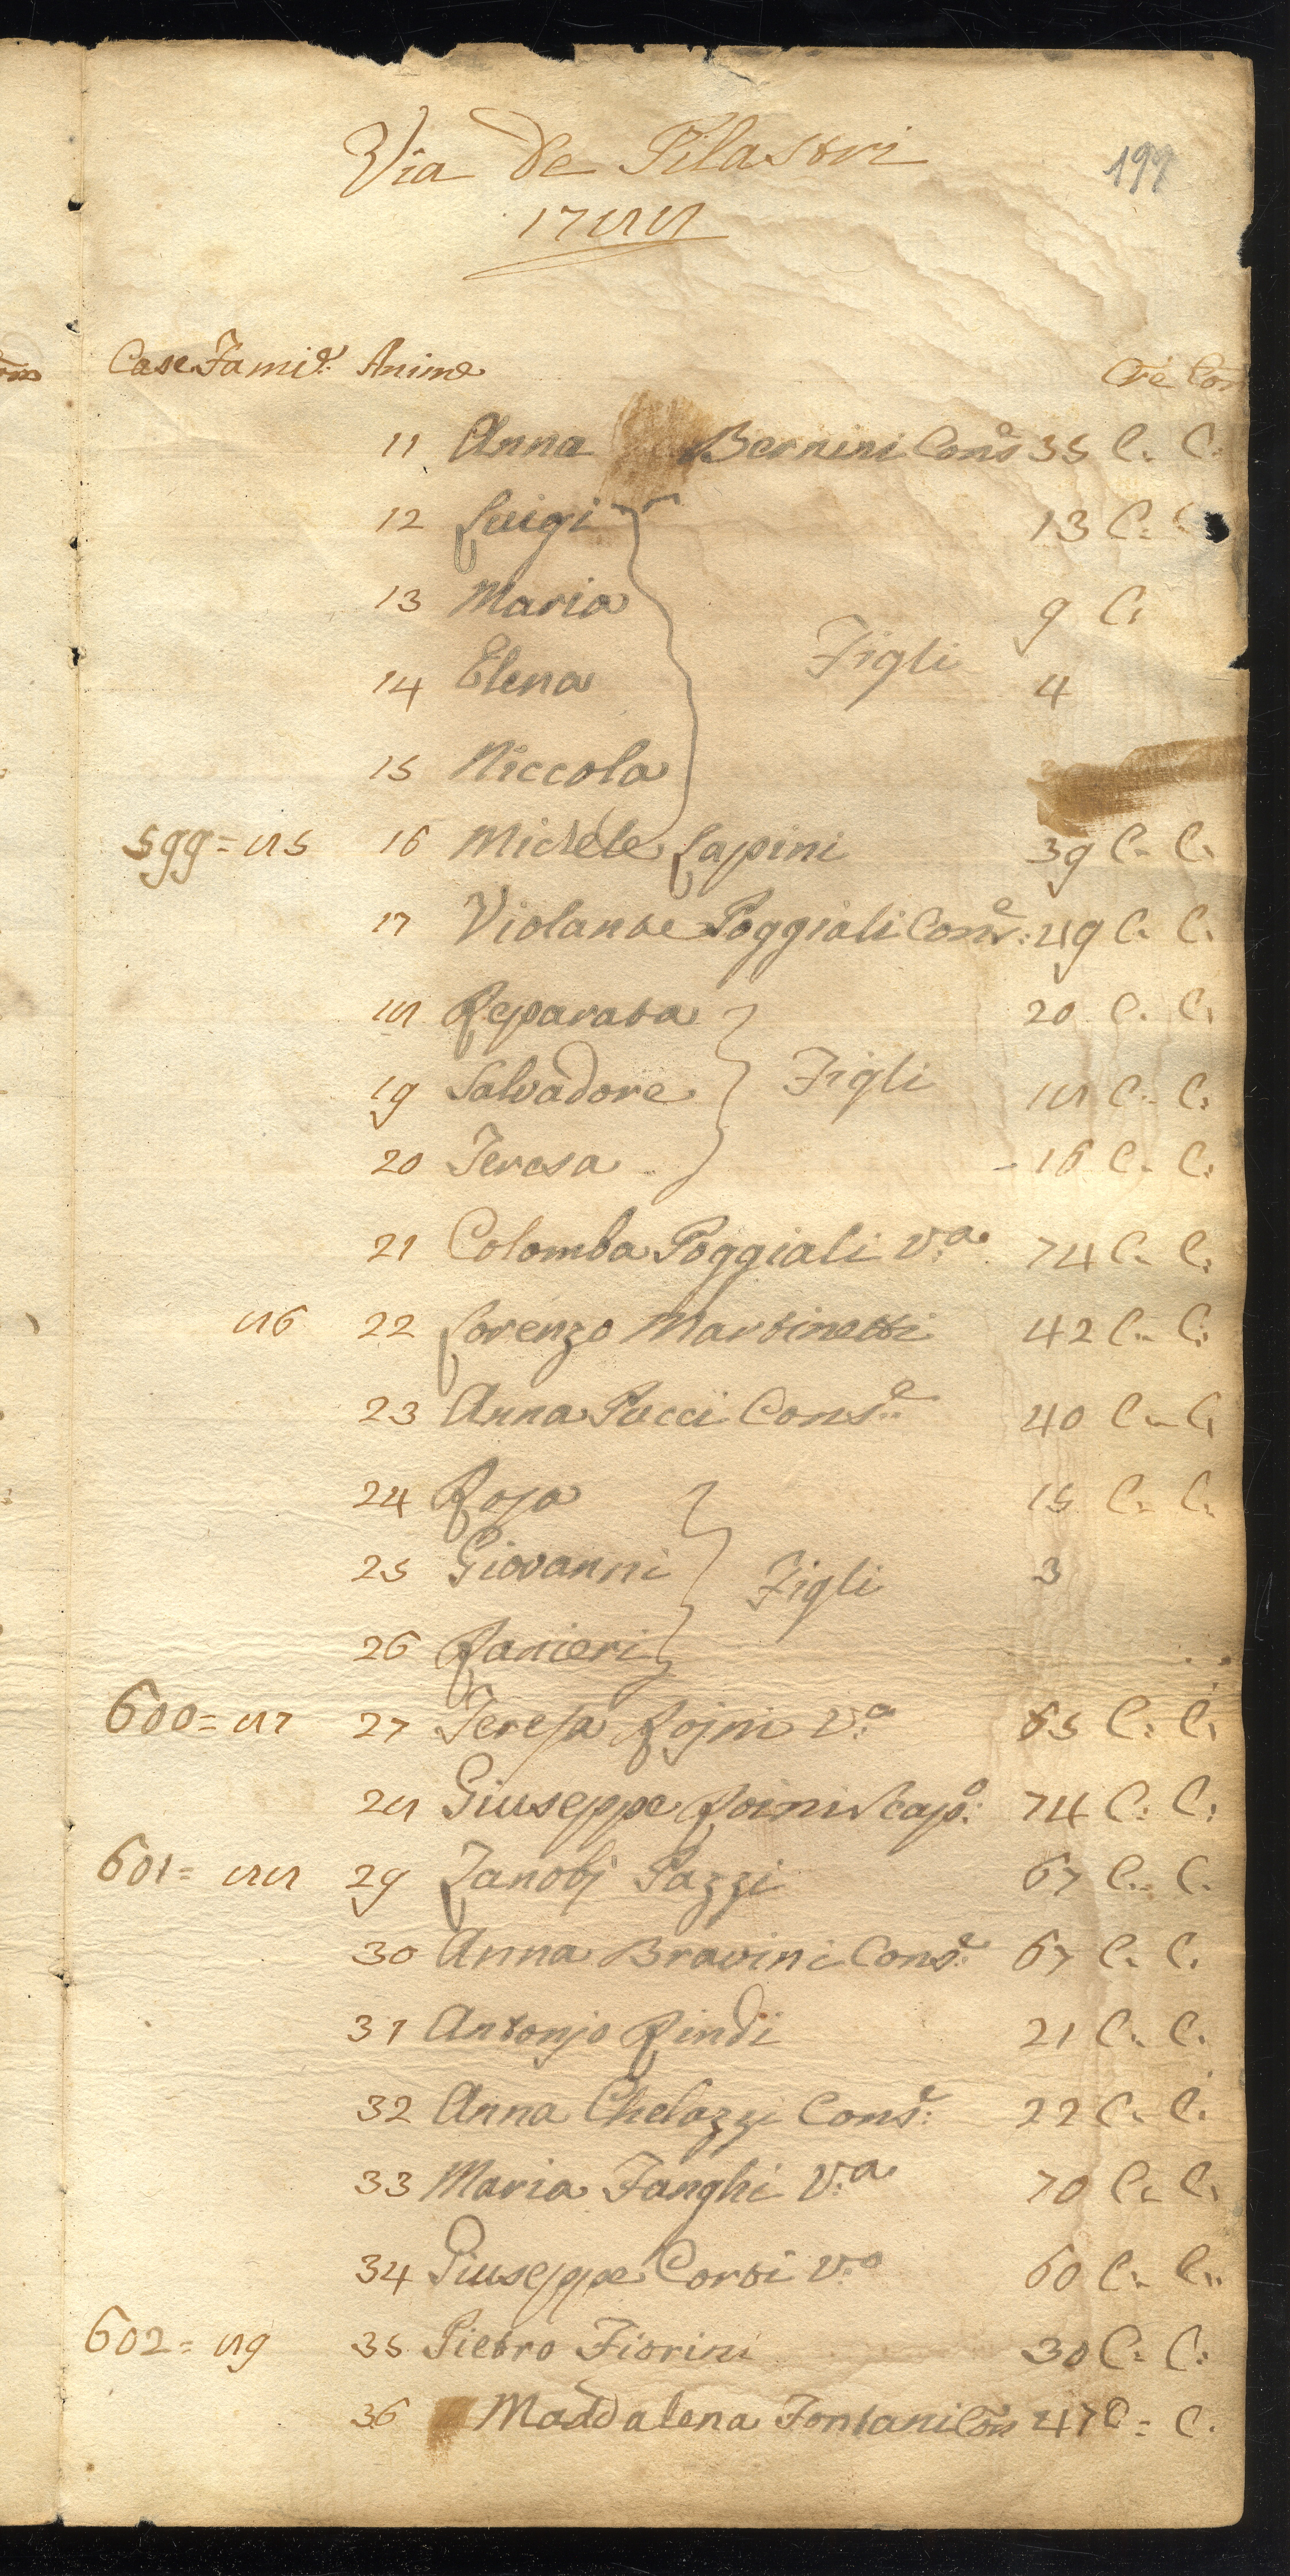 Via de Pilastri
197
1788
Case Famie: Anime Cre Com
11 Anna Bernini Conse 35 C. C.
12 Luigi 13 C:
13 Maria 9 C:
Figli
14 Elena 4
15 Niccola
599 = 85 16 Michele Lapini 39 C. C.
17 Violante Poggiali Conse: 49 C. C.
18 Reparata 20 C. C.
19 Salvadore Figli 18 C. C.
20 Teresa 16 C. C.
21 Colomba Poggiali V:a 74 C. C.
86 22 Lorenzo Martinetti 42 C. C.
23 Anna Pucci Conse: 40 C. C.
24 Rosa 15 C. C.
25 Giovanni Figli 3
26 Ranieri
600 = 87 27 Teresa Rojni V:a 65 C: C:
28 Giuseppe Roini Scapo: 74 C: C:
601 = 88 29 Zanobj Pazzi 67 C. C.
30 Anna Bravini Conse: 67 C. C.
31 Antonjo Rindi 21 C. C.
32 Anna Chelazzi Conse: 22 C. C.
33 Maria Fanghi V:a 70 C. C.
34 Giuseppe Corti V:o 60 C. C.
602 = 89 35 Pietro Fiorini 30 C: C:
36 Maddalena Fontani Con 47 C = C.